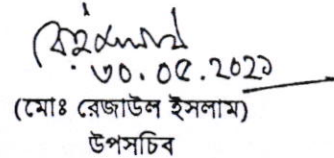 ৩০.০৫.২০২১
(মোঃ রেজাউল ইসলাম)
উপসচিব